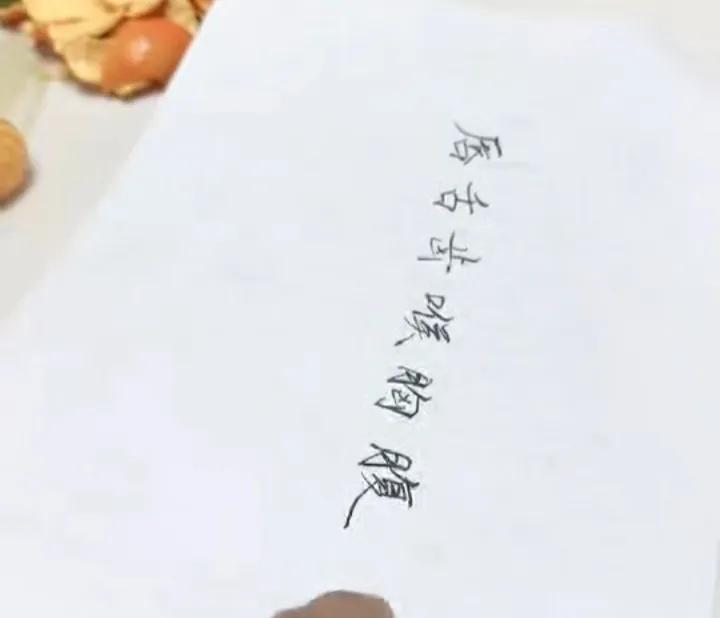 唇舌齿喉胸腹